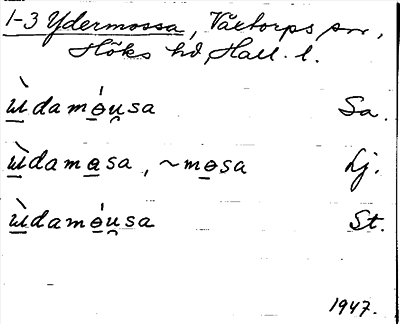 1-3 Ydermossa, Våxtorps sn,
Höks hd, Hall. l.
ùdamo̱u̯sa Sa.
ùdama̱sa, ~mo̱sa Lj.
ùdamo̱u̯sa St.
1947.